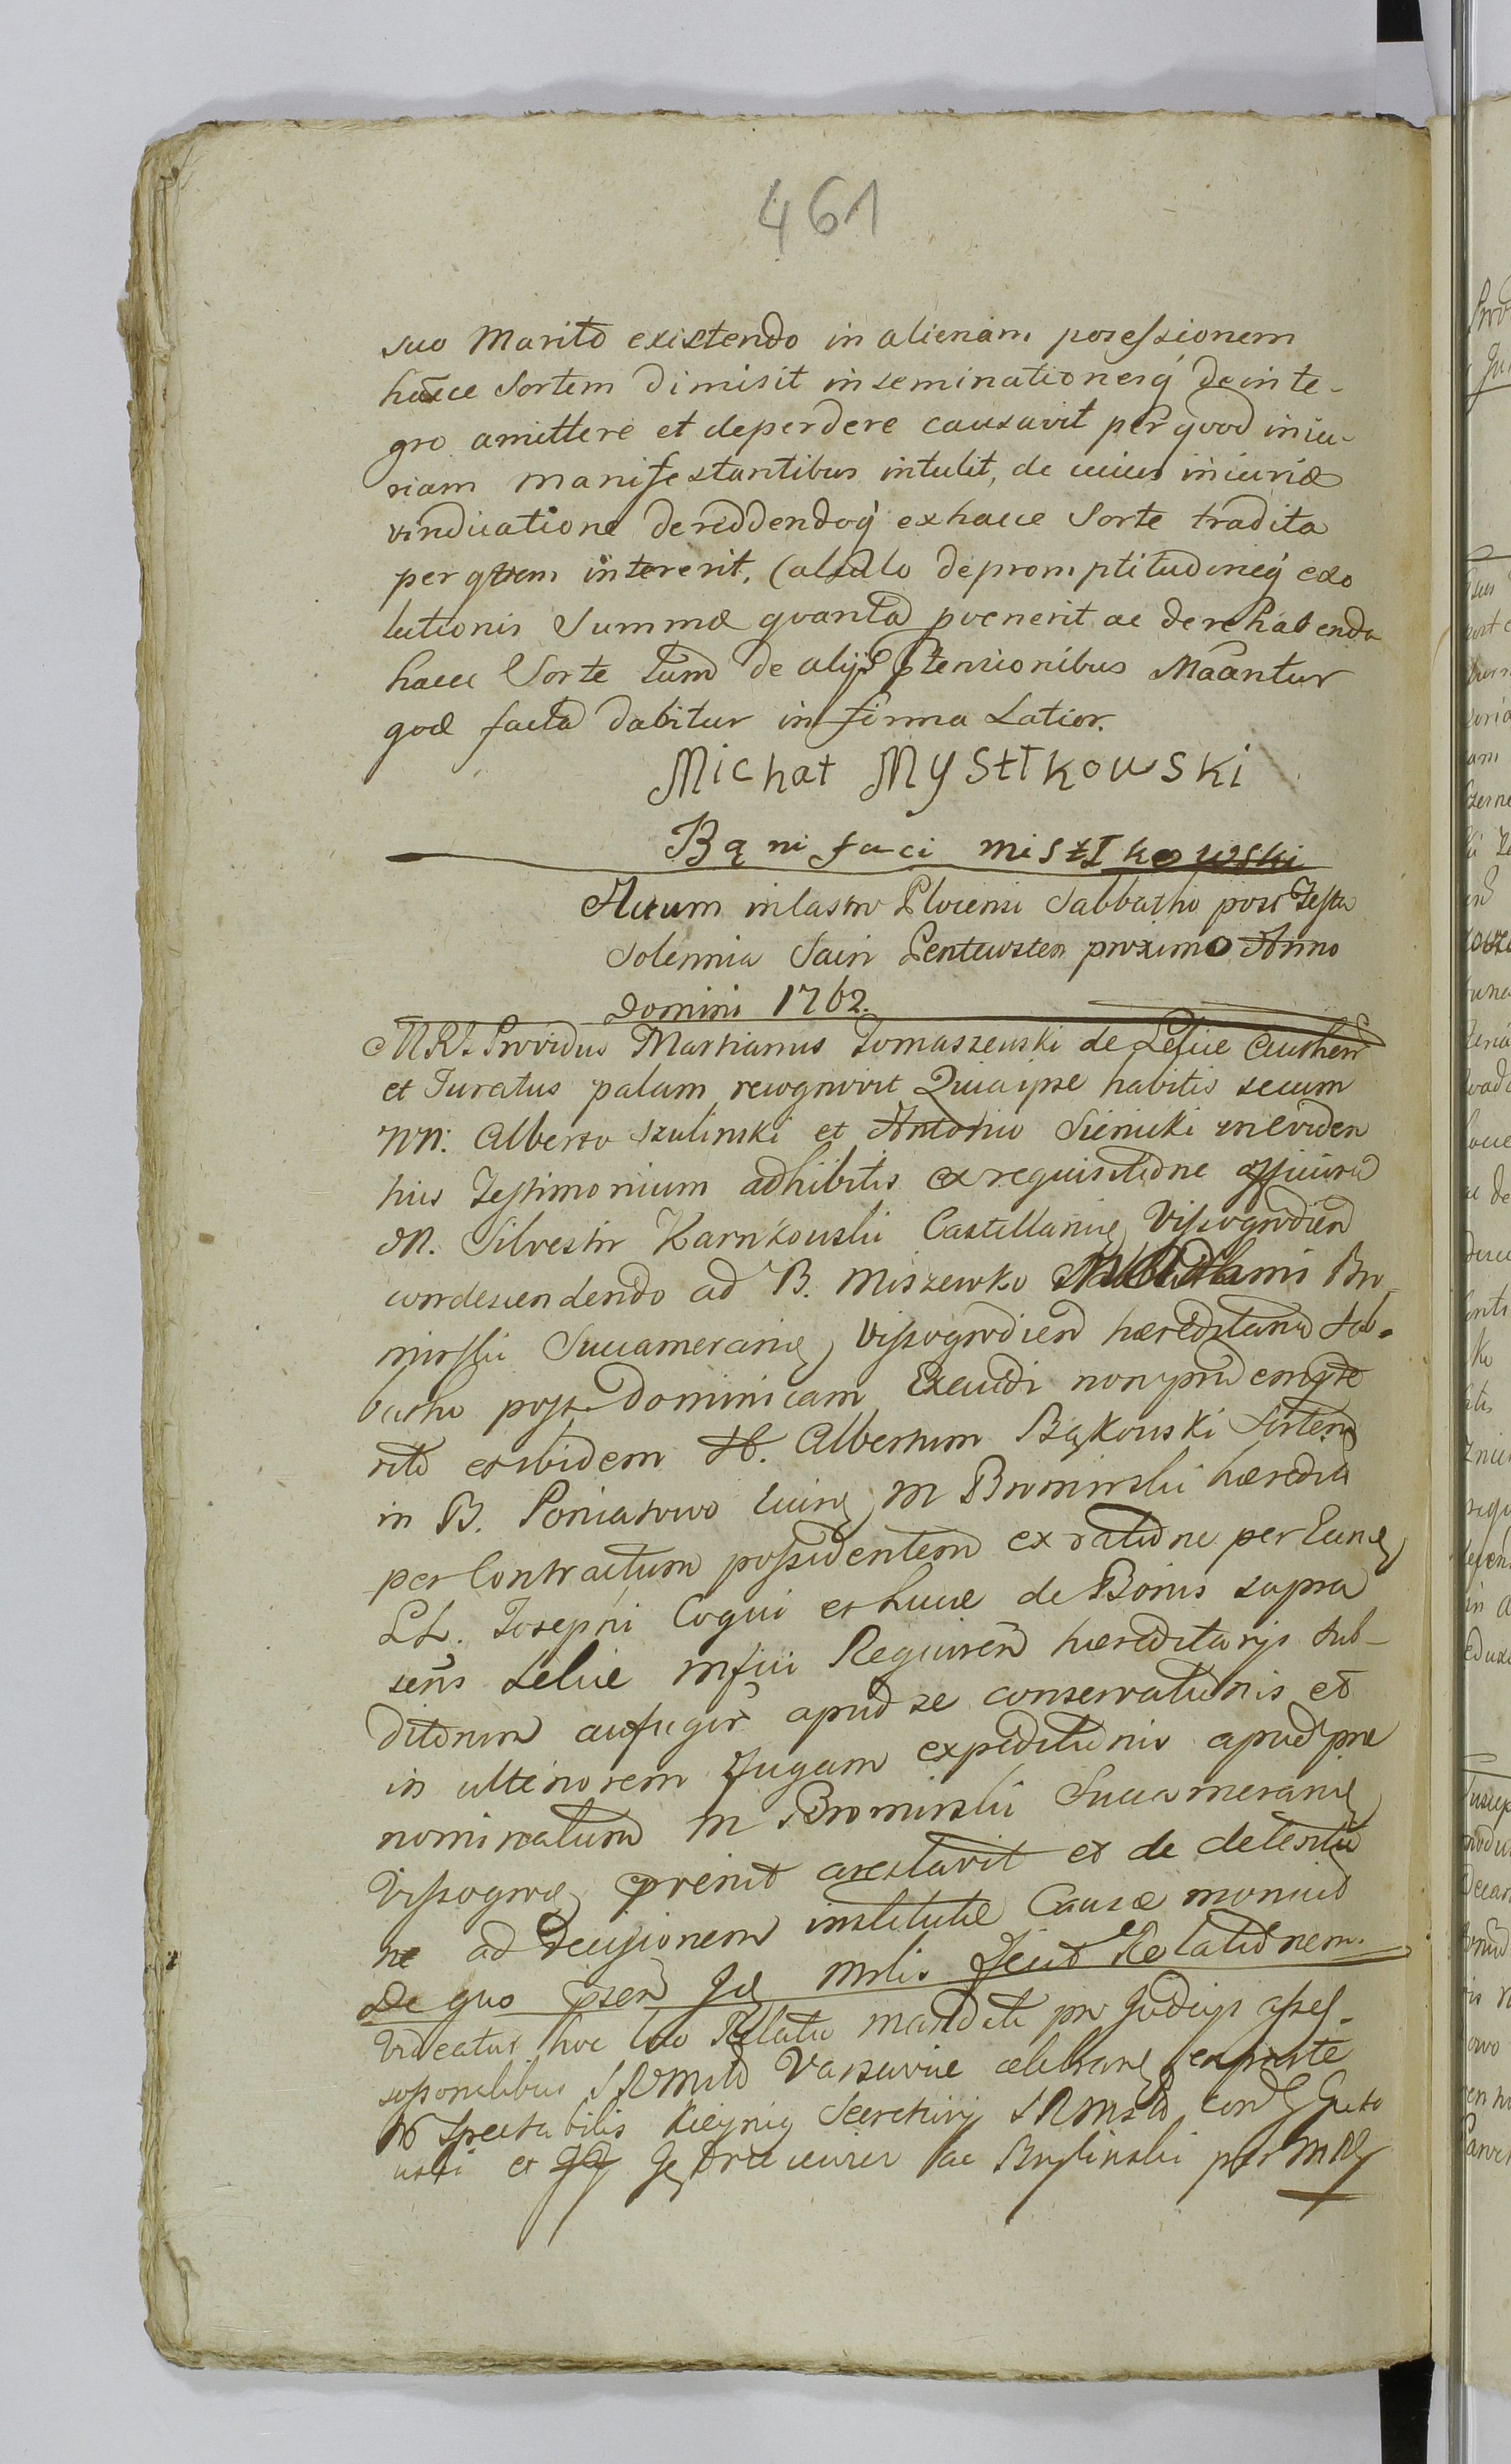 461
suo Marito existendo in alienam poressionem
hance Sortem dimisit inseminationesq́ de inte-
gro amittere et deperdere causavit per qvod iniu-
riam manifestantibus intulit, de cuius iniuriæ
vindicatione de reddendoq́ ex hacce Sorte tradita
per qtrem intererit, (alsdlo de promptitudineq́ exo
lutionis Summæ qvanta poenerit ac de rehabenda
hacce Sorte tum de alijs ptensionibus Maantur
qvæ facta dabitur in forma Latior.
Michał Mysttkowski
Bąni faci miststkowski
Actum in Castro Plocensi Sabbatho post Festa
Solennia Sacri Pentecosten proximo Anno
Domini 1762.
MRT. Providus Martianus Tomaszewski de
et Juratus palam recognovit Quia ipse habitis secum
NN. Alberto Szulinski et Antonio Sienicki in eviden
tius Testimonium adhibitis ex requisitione
M. Silvestri Karnkowski Castellanię Vissogrodien
condescendendo ad B. Miszewko Bro
minski Succamerarię Vissogrodien hæreditaria Sab-
batho post Dominicam Exaudi non
rito et ibidem G. Albertum Bąkowski Sortem
in B. Poniatowo M Brominski hæredit
per Contractum possidentem ex ratione per Eund
LL. Josephi Coqui et Lucæ de Bonis supra
sens Requiren hæreditarijs sub-
ditorum aufugit apud se conservationis et
in ulteriorem fugam expeditionis apud præ
nominatum M Brominski Succamerarię
Vissogro prenit arestavit et de detentio
ne ad decisionem institutæ Causæ monuit
De quo psen Relationem.
Videatur hoc loco Relatio mandati pro Judicijs asses-
sorialibus SRMtis Varsaviæ celebran ex parte
Spectabilis Secretarij SRMtis
et ac Brylinski per MR